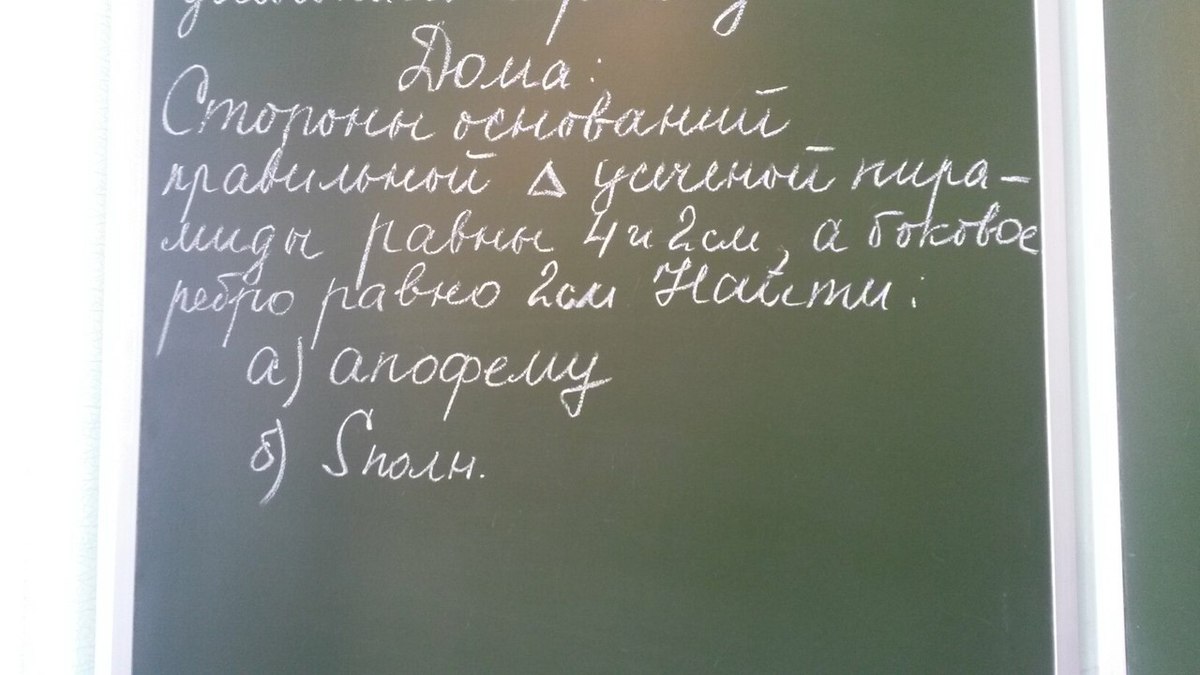 Дома:
Стороны оснований
правильной Δ усеченой пира-
миды равны 4 и 2 см, а боковое
ребро равно 2 см Найти:
а) апофему
б) Sполн.